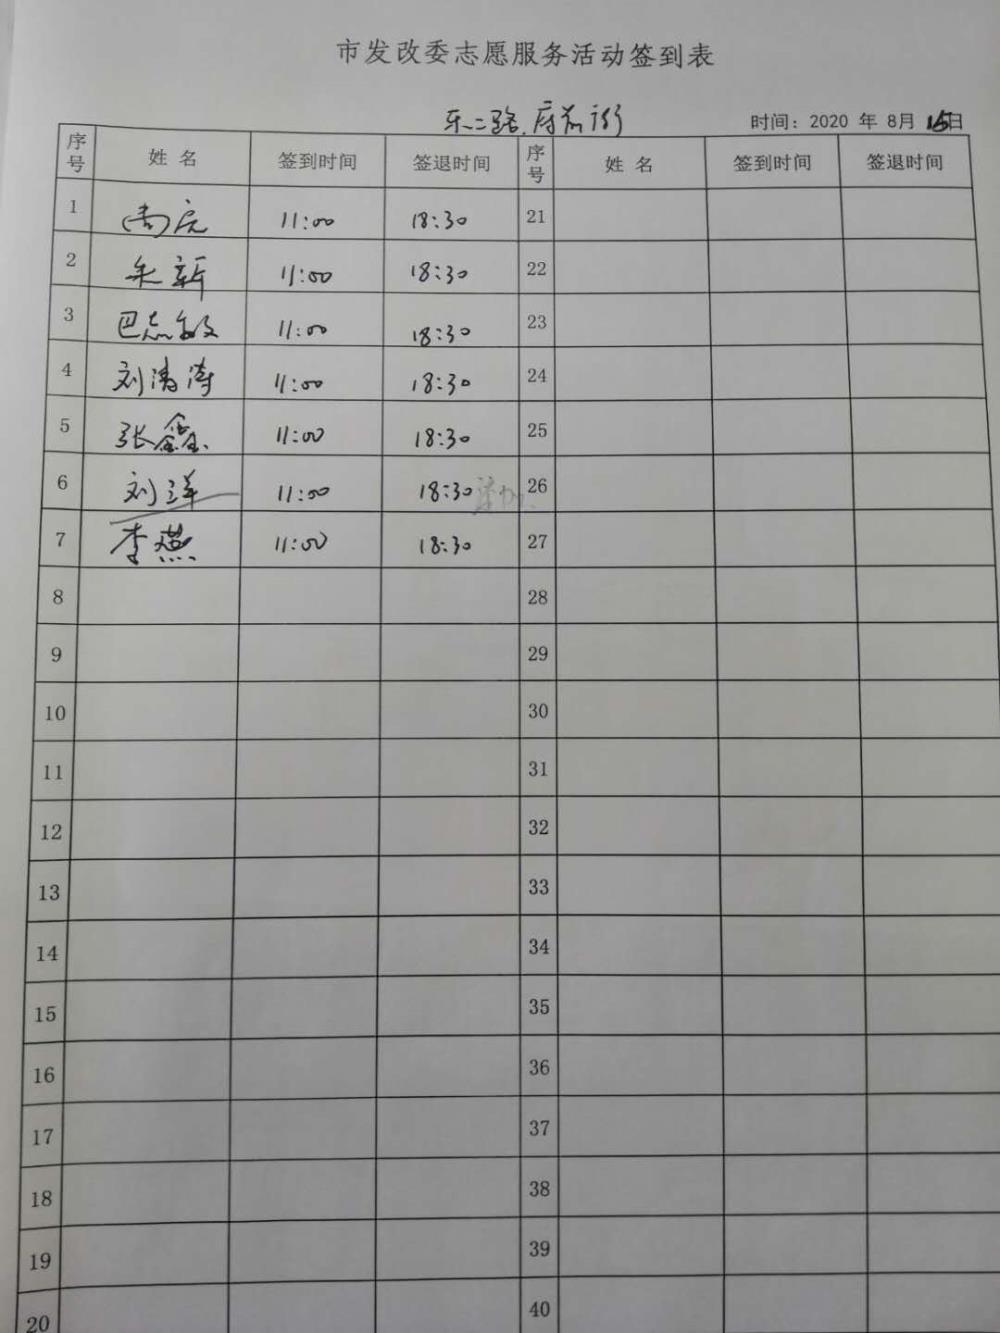 市发改委志愿服务活动签到表
东二路.府前街 时间：2020 年 8月 15日
序号 姓 名 签到时间 签退时间 序号 姓 名 签到时间 签退时间
1 11:00 18:30 21
2 朱新 11:00 18:30 22
3 巴志敏 11:00 18:30 23
4 刘清涛 11:00 18:30 24
5 张鑫 11:00 18:30 25
6 刘洋 11:00 18:30 26
7 李燕 11:00 18:30 27
8 28
9 29
10 30
11 31
12 32
13 33
14 34
15 35
16 36
17 37
18 38
19 39
20 40